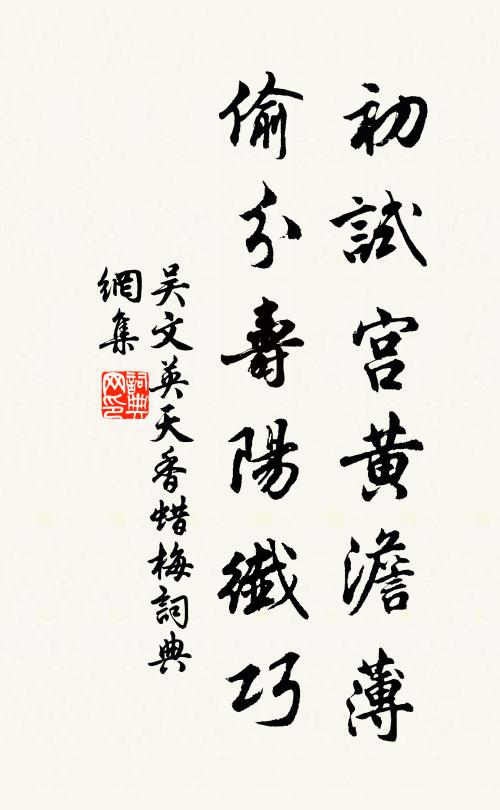 初試宮黃澹薄
偷分壽陽纖巧
吴文英天香蜡梅詞典
網集
詞典
网印